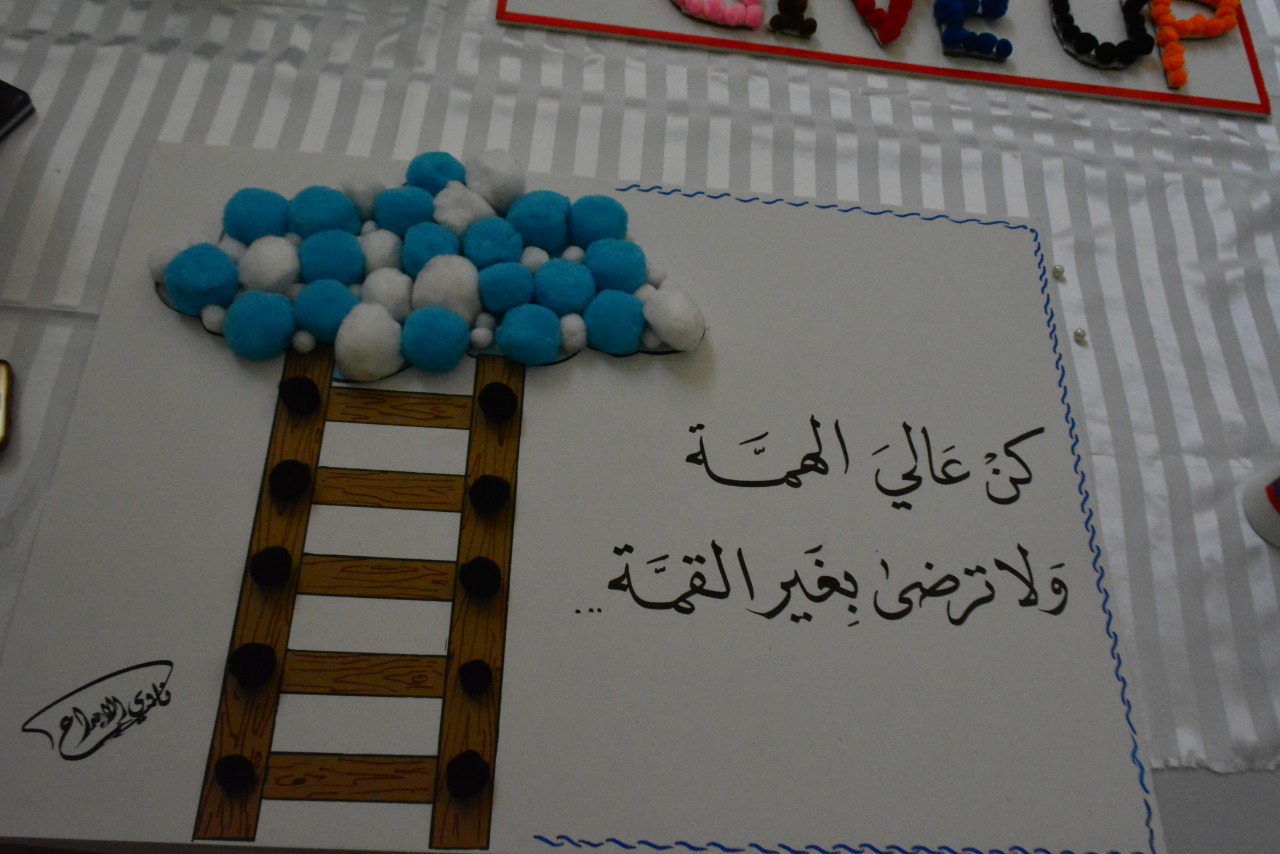 GIVE UP
كنْ عَاليَ الهمَّة
وَلا ترضىٰ بِغَير القمَّة...
نادي الابداع